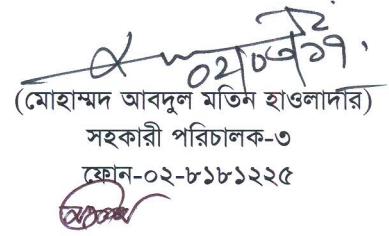 ০২/০৩/১৭
(মোহাম্মদ আবদুল মতিন হাওলাদার)
সহকারী পরিচালক-৩
ফোন-০২-৮১৮১২২৫